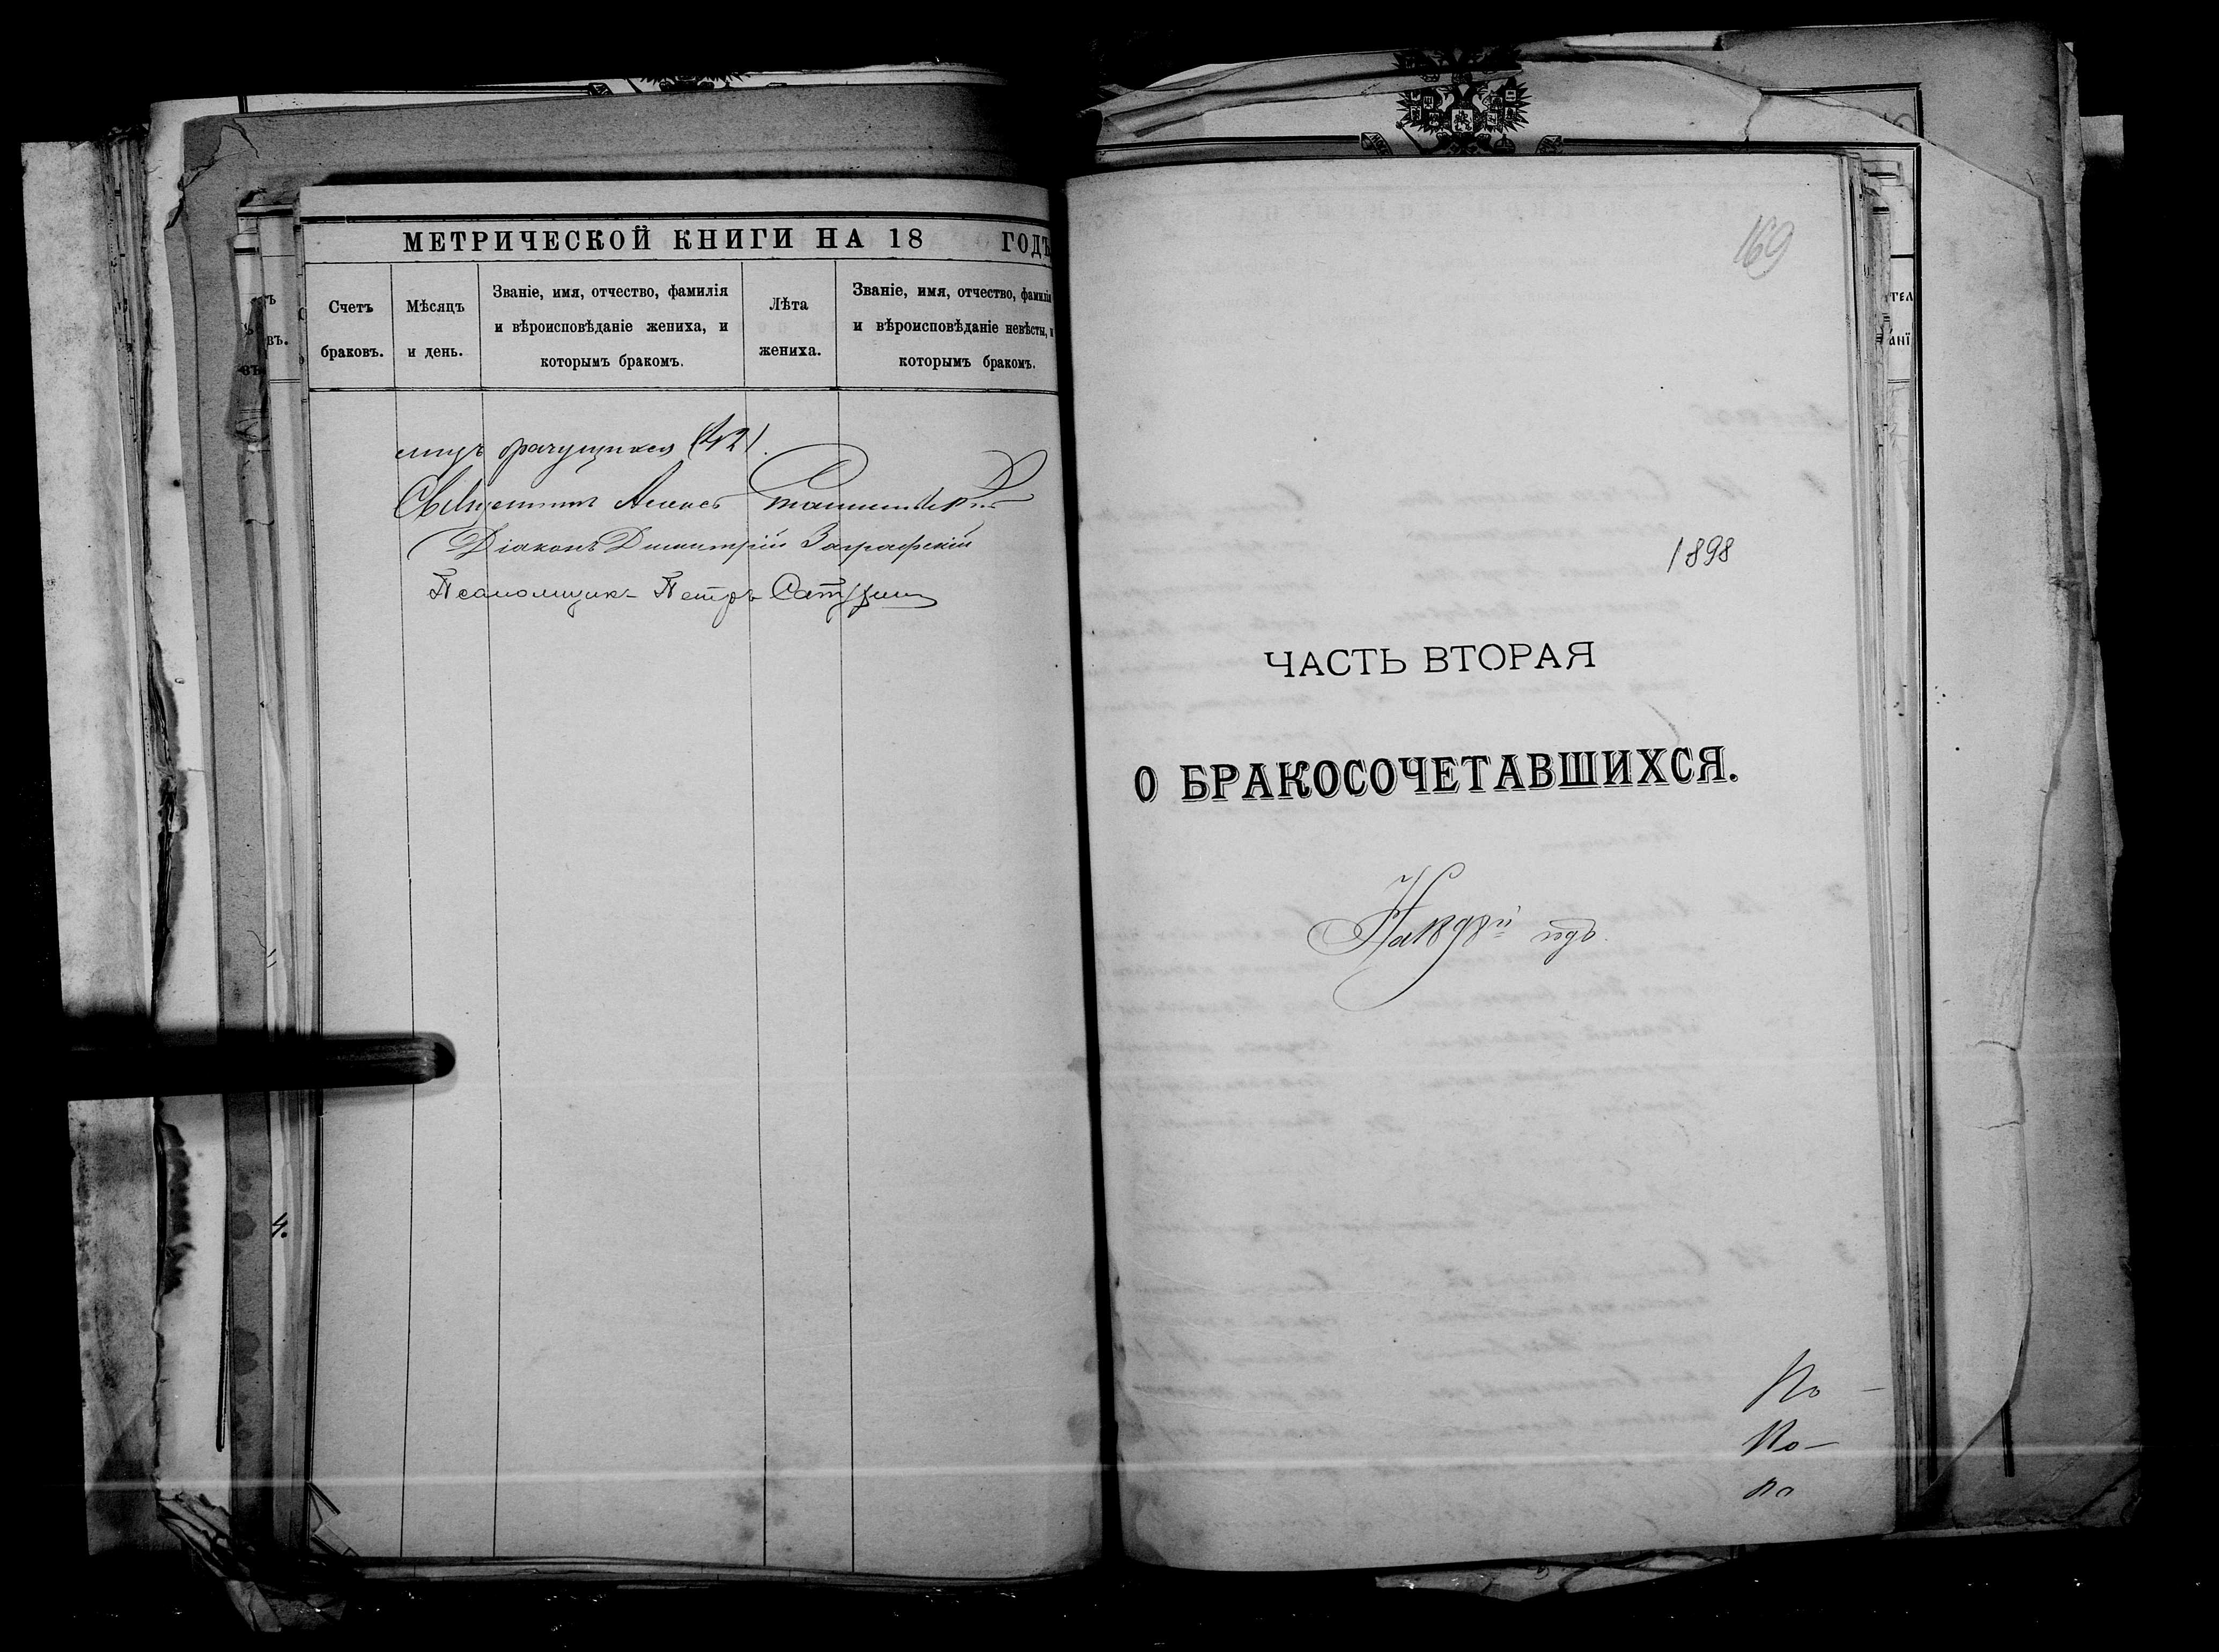 МЕТРИЧЕСКОЙ КНИГИ НА 18 ГОДЪ
Счетъ браковъ.
Мѣсяцъ и день.
Званіе, имя, отчество, фамилія и вѣроисповѣданіе жениха, и которымъ бракомъ.
Лѣта жениха.
Званіе, имя, отчество, фамилія и вѣроисповѣданіе невѣсты, и которымъ бракомъ.
лицъ брачущихся (42).
Священникъ
Діаконъ Димитрій Заграфскій
Псаломщикъ Петръ
169
1898
ЧАСТЬ ВТОРАЯ
О БРАКОСОЧЕТАВШИХСЯ.
На 1898й годъ.
По —
По —
по